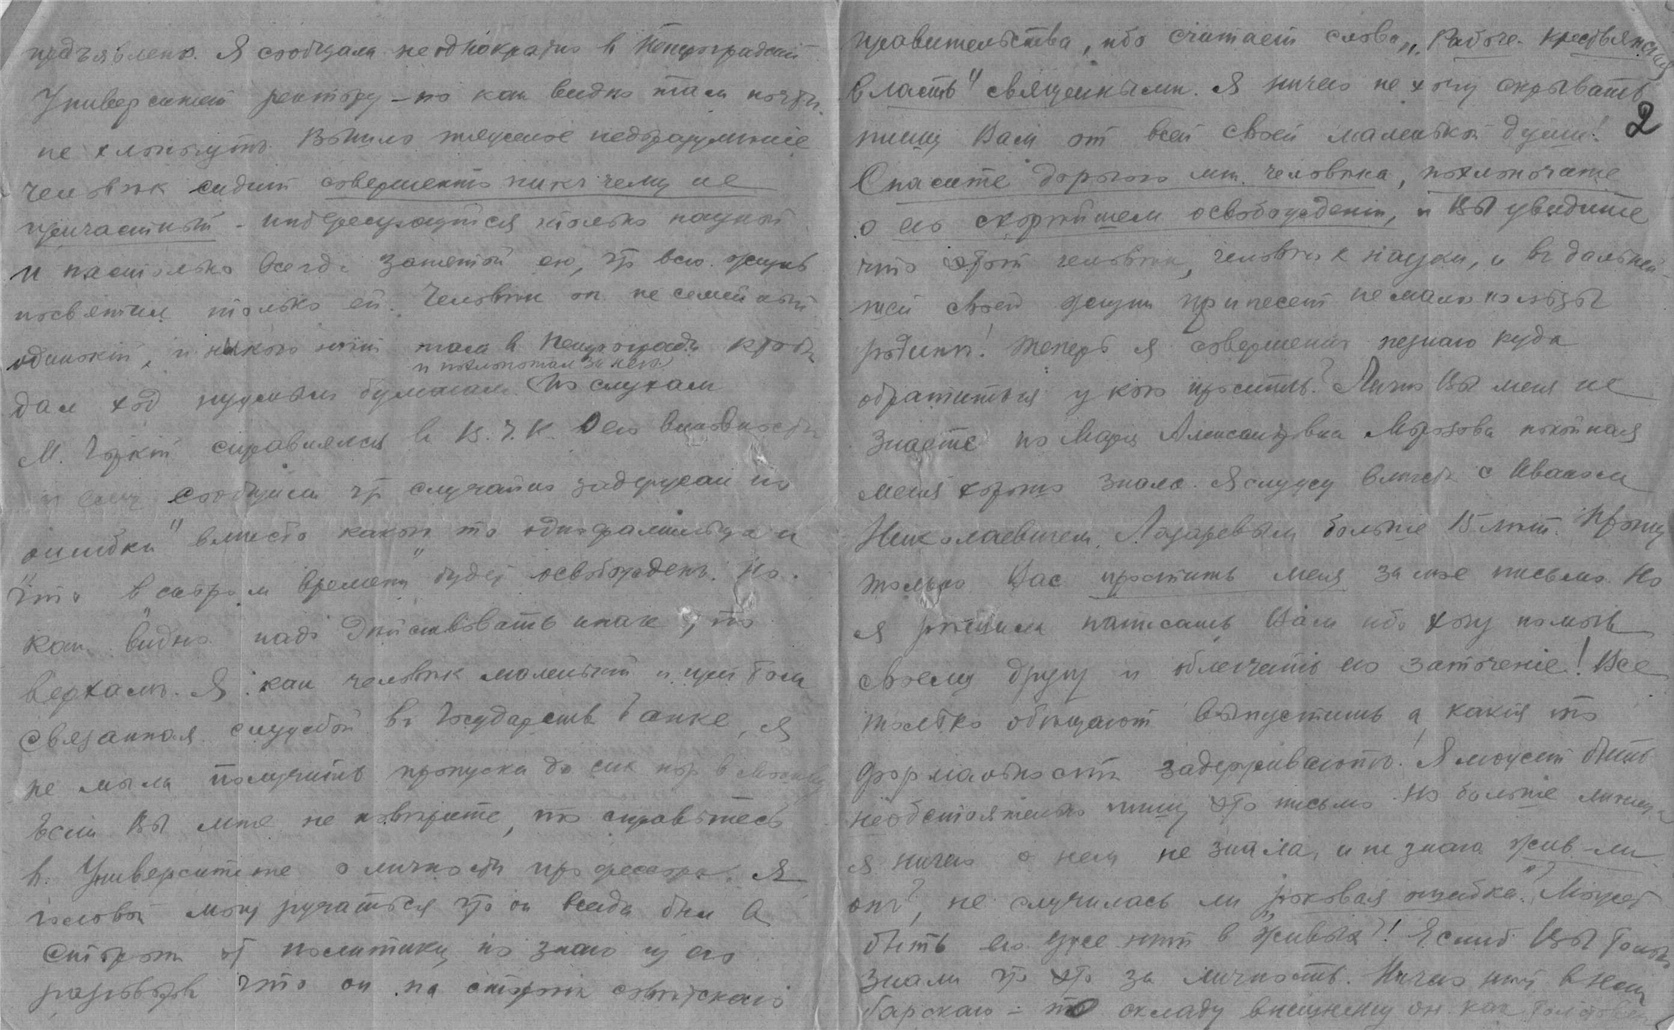 предъявлено. Я сообщала неоднократно в Петроградский
Университет ректору – но как видно там почти
не хлопочутъ. Вышло тяжелое недоразумѣніе
человѣк сидит совершенно ник чему не
причастный – интересующійся только наукой
и настолько всегда занятой ею, что всю жизнь
посвятил только ей. Человѣк он не семейный
одинокій, и никого нѣт там в Петроградѣ кто бы
и похлопотал за него
дал ход нужным бумагам. По слухам
М. Горкій справлялся в В.Ч.К. о его виновности
и ему сообщили что случайно задержан по
ошибки" вместо какого то однофамильца и
что "в скором времени" будет освобожден. Но
как видно надо действовать иначе, по
верхам. Я как человѣк маленькій и при том
связанная службой в Государств Банке, я
не могла получить пропуска до сих пор в Москву
Если Вы мне не поверите, то справьтесь
в Университете о личности профессора. Я
головой могу ручаться что он всегда был в
стороне от политики, но знаю из его
разговоров что он на стороне советскаго
правительства, ибо считает слова „Рабоче-крестьянская
власть" священными. Я ничего не хочу скрывать
пишу Вам от всей своей маленькой души!
2
Спасите дорогого мне человѣка, похлопочите
о его скорѣйшем освобожденіи, и Вы увидите
что этот человѣк, человѣк науки, и в дальней
шей своей жизни принесет не мало пользы
родинѣ! Теперь я совершенно незнаю куда
обратиться у кого просить? Лично Вы меня не
знаете но Марія Александровна Морозова покойная
меня хорошо знала. Я служу вместе с Иваном
Николаевичем Лазаревым больше 15 лѣт. Прошу
только Вас простить меня за мое письмо. Но
я рѣшила написать Вам ибо хочу помочь
своему другу и облегчить его заточеніе! Все
только обѣщают выпустить а какія то
формальности задерживаютъ! Я может быть
необстоятельно пишу это письмо. Но больше мѣсяца
я ничего о нем не знала, и не знаю жив-ли
он?, не случилась ли роковая ошибка? Может
быть его уже нѣт в "живых"! Если б Вы только
знали что это за личность. Ничего нѣт в нем
барскаго – по складу внешнему он как